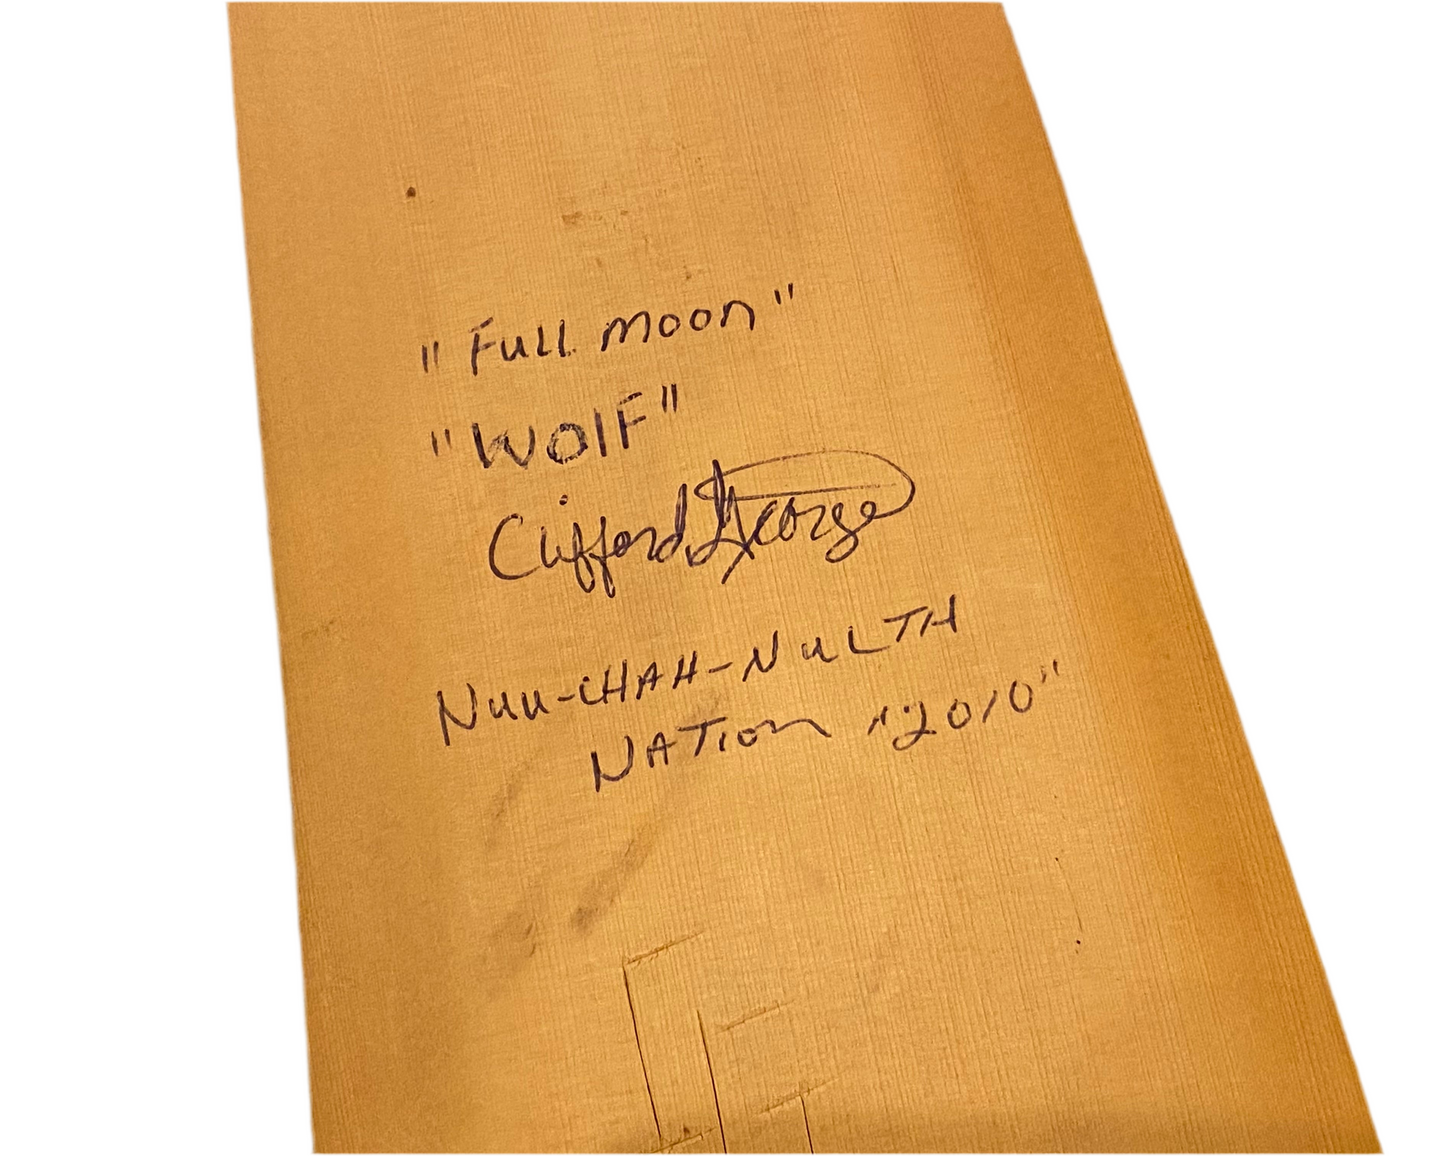 "Full moon"
"WOlF"
Clifford George
Nuu-CHAH-NuLTH
NATion "2010"